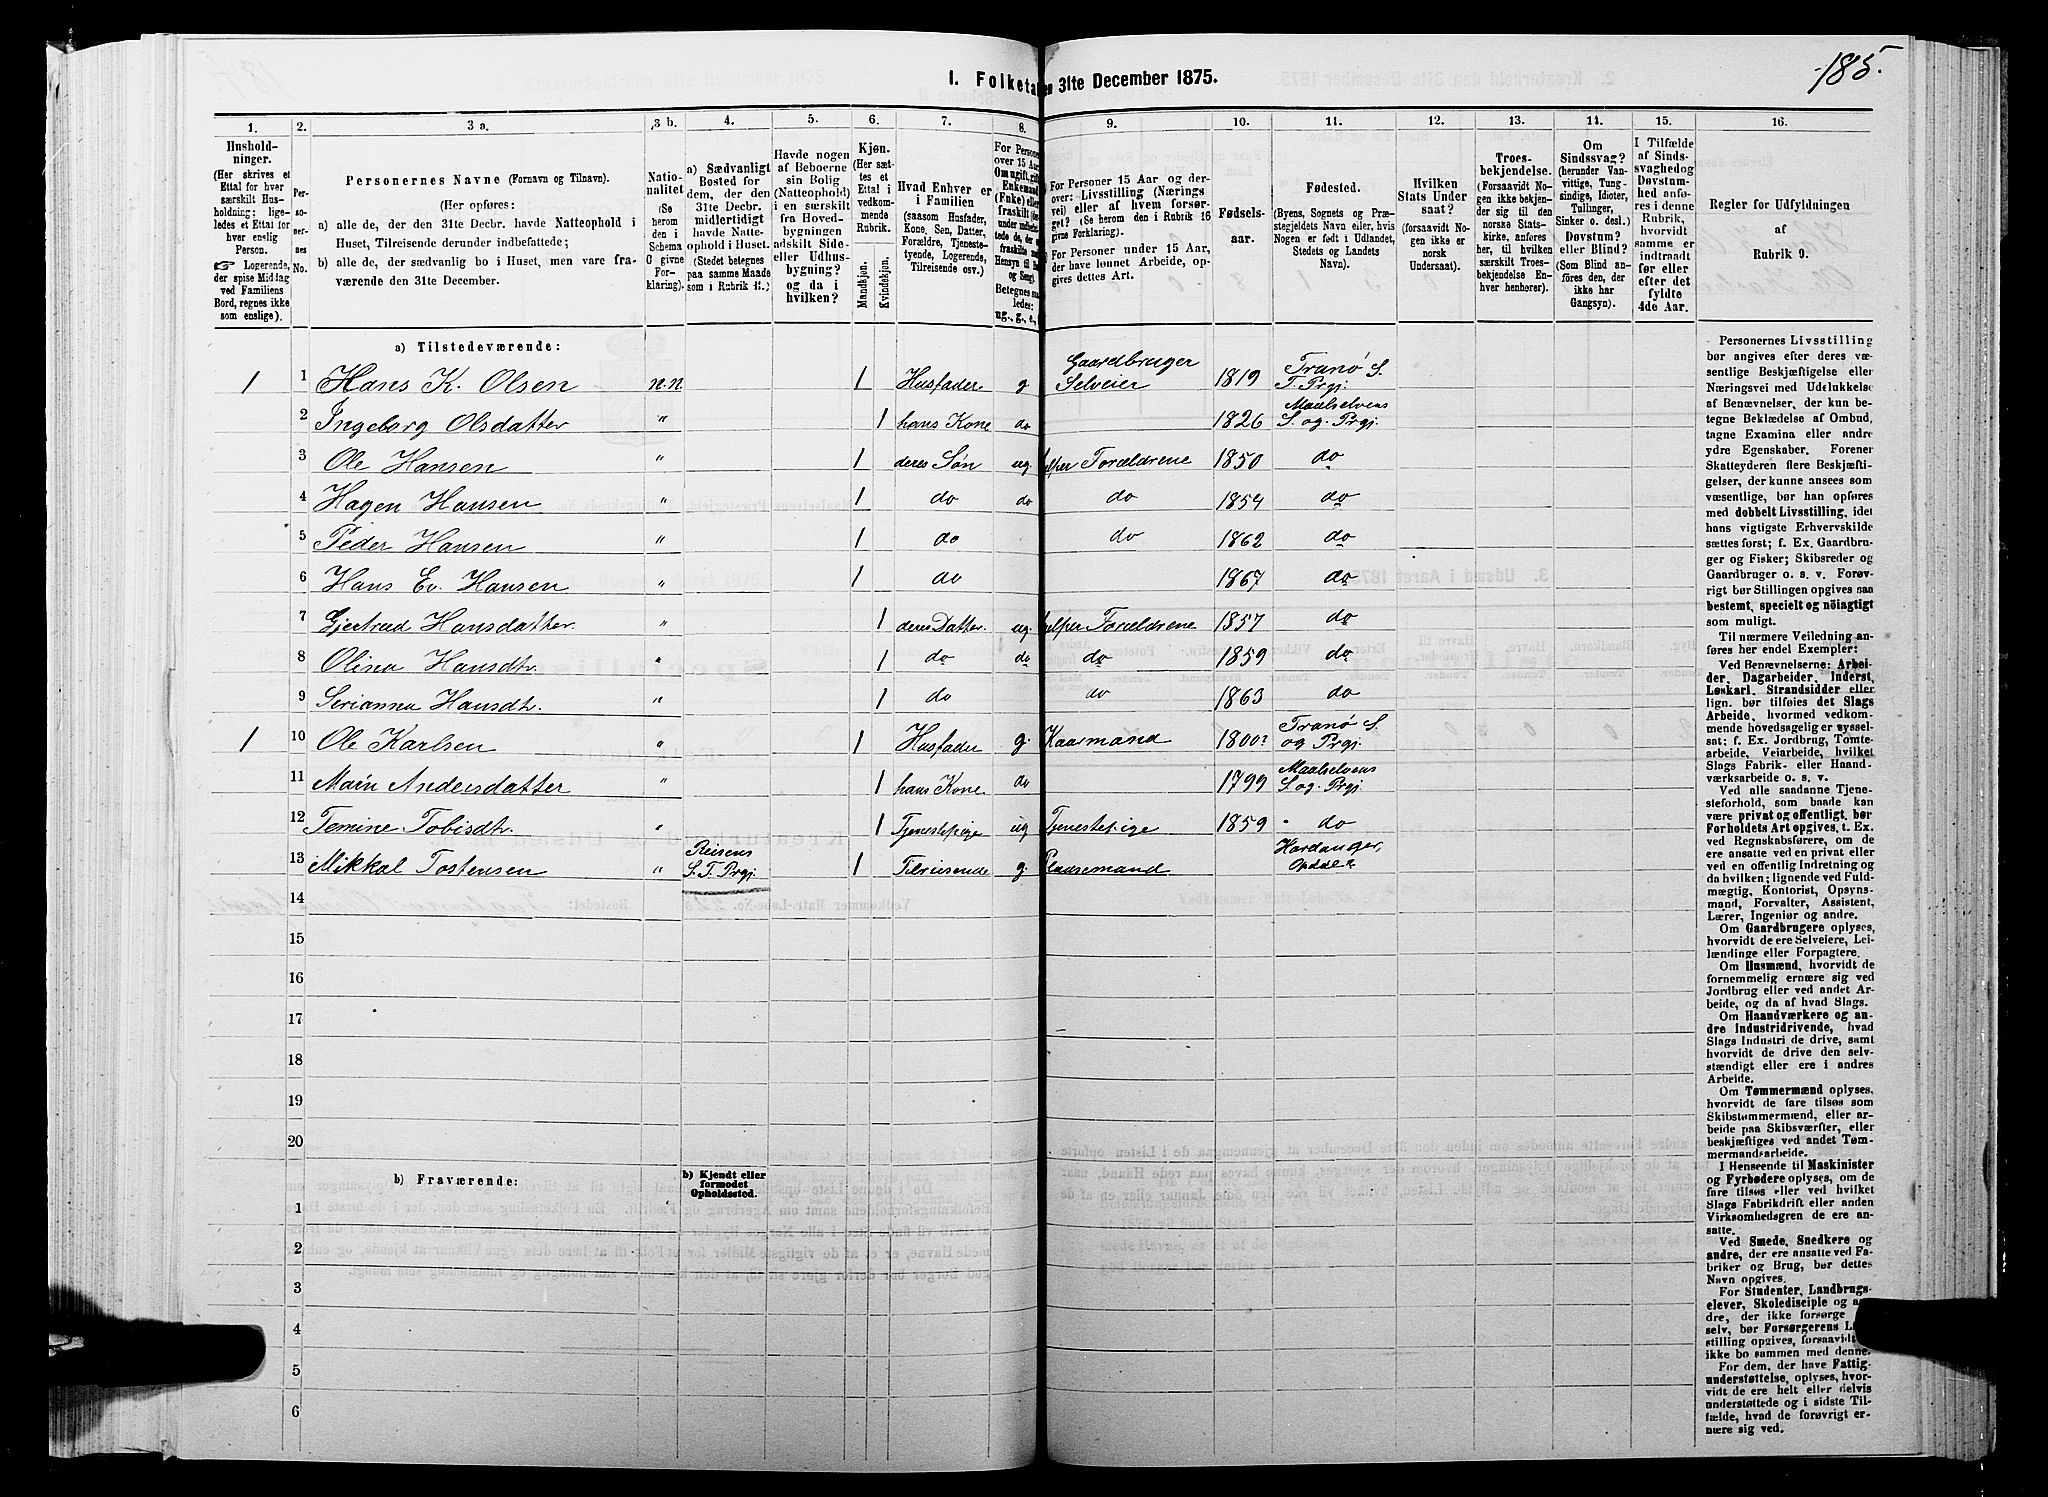 185.
I. Folketa en 31te December 1875.
1. 2. 3 a. 3 b. 4. 5. 6. 7. 8. 9. 10. 11. 12. 13. 14. 15. 16.
Husholdninger. (Her skrives et Ettal for hver særskilt Husholdning; ligeledes et Ettal for hver enslig Person.
☞ Logerende, der spise Middag ved Familiens Bord, regnes ikke som enslige).
Personernes No.
Personernes Navne (Fornavn og Tilnavn).
(Her opføres:
a) alle de, der den 31te Decbr. havde Natteophold i Huset, Tilreisende derunder indbefattede;
b) alle de, der sædvanlig bo i Huset, men vare fraværende den 31te December.
Nationalitet (Se herom den i Schema G givne Forklaring).
a) Sædvanligt Bosted for dem, der den 31te Decbr. midlertidigt havde Natteophold i Huset. (Stedet betegnes paa samme Maade som i Rubrik 11.)
Havde nogen af Beboerne sin Bolig (Natteophold) i en særskilt fra Hovedbygningen adskilt Side- eller Udhusbygning? og da i hvilken?
Kjøn. (Her sættes et Ettal i vedkommende Rubrik.
Mandkjøn. Kvindekjøn.
Hvad Enhver er i Familien (saasom Husfader, Kone, Søn, Datter, Forældre, Tjenestetyende, Logerende, Tilreisende osv.)
For Personer over 15 Aar, Om ugift, gift, Enkemand (Enke) eller fraskilt
Betegnes saaledes: ug., g., e.,
For Personer 15 Aar og derover: Livsstilling (Næringsvei) eller af hvem forsørget? (Se herom de i Rubrik 16 givne Forklaring).
For Personer under 15 Aar, der have lønnet Arbeide, opgives dettes Art.
Fødselsaar.
Fødested. (Byens, Sognets og Præstegjeldets Navn eller, hvis Nogen er født i Udlandet, Stedets og Landets Navn).
Hvilken Stats Undersaat? (forsaavidt Nogen ikke er norsk Undersaat).
Troesbekjendelse. (Forsaavidt Nogen ikke bekjender sig til den norske Statskirke, anføres her, til hvilken særskilt Troesbekjendelse Enhver henhører).
Om Sindssvag? (herunder Vanvittige, Tungsindige, Idioter, Tullinger, Sinker o. desl.) Døvstum? eller Blind? (Som Blind anføres den, der ikke har Gangsyn).
I Tilfælde af Sindssvaghed og Døvstumhed anføres i denne Rubrik, hvorvidt samme er indtraadt før eller efter det fyldte 4de Aar.
Regler for Udfyldningen af Rubrik 9.
a) Tilstedeværende:
1 1 Hans K. Olsen n.n 1 Husfader g Gaardbruger Selveier 1819 Tranö S. T. Prgj.
2 Ingeborg Olsdatter " 1 hans Kone do 1826 Maalselvens S. og. Prgj.
3 Ole Hansen " 1 deres Søn ug. jelper Forældrene 1850 do
4 Hagen Hansen " 1 do do do 1854 do
5 Peder Hansen " 1 do do 1862 do
6 Hans Ev. Hansen " 1 do 1867 do
7 Gjertrud Hansdatter. " 1 deres Datter. ug. jelper Forældrene 1857 do
8 Olina Hansdtr. " 1 do do do 1859 do
9 Serianna Hansdtr. " 1 do do 1863 do
1 10 Ole Karlsen " 1 Husfader g. Kaarmand 1800? Tranö S. og Prgj.
11 Marn Andersdatter " 1 hans Kone do 1799 Maalselvens S. og. Prgj.
12 Temine Tobisdtr. " 1 Tjenestepige ug Tjenestepige 1859 " do
13 Mikkal Tostensen " Reisens S. T. Prgj. 1 Tilreisende g. Pladsemand Hardanger,
14
15
16
17
18
19
20
b) Fraværende:
b) Kjendt eller formodet Opholdssted.
1
2
3
4
5
6
Personernes Livsstilling
bør angives efter deres væ-
sentlige Beskjæftigelse eller
Næringsvei med Udelukkelse
af Benævnelser, der kun be-
tegne Beklædelse af Ombud,
tagne Examina eller andre
ydre Egenskaber. Forener
Skatteyderen flere Beskjæfti-
gelser, der kunne ansees som
væsentlige, bør han opføres
med dobbelt Livsstilling, idet
hans vigtigste Erhvervskilde
sættes først; f. Ex. Gaardbru-
ger og Fisker; Skibsreder og
Gaardbruger o. s. v. Forøv-
rigt bør Stillingen opgives saa
bestemt, specielt og nöiagtigt
som muligt.
Til nærmere Veiledning an-
føres her endel Exempler:
Ved Benævnelserne: Arbei-
der, Dagarbeider, Inderst,
Løskarl, Strandsidder eller
lign. bør tilføies det Slags
Arbeide, hvormed vedkom-
mende hovedsagelig er syssel-
sat; f. Ex. Jordbrug, Tomte-
arbeide, Veiarbeide, hvilket
Slags Fabrik- eller Haand-
værksarbeide o. s. v.
Ved alle saadanne Tjene-
steforhold, som baade kan
være privat og offentligt, bør
Forholdets Art opgives, t. Ex.
ved Regnskabsførere, om de
ere ansatte ved en privat eller
ved en offentlig Indretning og
da hvilken; lignende ved Fuld-
mægtig, Kontorist, Opsyns-
mand, Forvalter, Assistent,
Lærer, Ingeniør og andre.
Om Gaardbrugere oplyses,
hvorvidt de ere Selveiere, Lei-
lændinge eller Forpagtere.
Om Husmænd, hvorvidt de
fornemmelig ernære sig ved
Jordbrug eller ved andet Ar-
beide, og da af hvad Slags.
Om Haandværkere og an-
dre Industridrivende, hvad
Slags Industri de drive, samt
hvorvidt de drive den selv-
stændigt eller ere i andres
Arbeide.
Om Tømmermænd oplyses,
hvorvidt de fare tilsøs som
Skibstømmermænd, eller ar-
beide paa Skibsværfter, eller
beskjæftiges ved andet Tøm-
mermandsarbeide.
I Henseende til Maskinister
og Fyrbødere oplyses, om de
fare tilsøs eller ved hvilket
Slags Fabrikdrift eller anden
Virksomhedsgren de ere an-
satte.
Ved Smede, Snedkere og
andre, der ere ansatte ved Fa-
briker og Brug, bør dettes
Navn opgives.
For Studenter, Landbrugs-
elever, Skoledisciple og
dre, der ikke forsørge
selv, bør Forsørgerens
stilling opgives, forsaavidt
ikke bo sammen med denne.
For dem, der have Fattig-
understøttelse, oplyses, hvor-
vidt de ere helt eller delvis
understøttede og i sidste Til-
fælde, hvad de forøvrigt er-
nære sig ved.